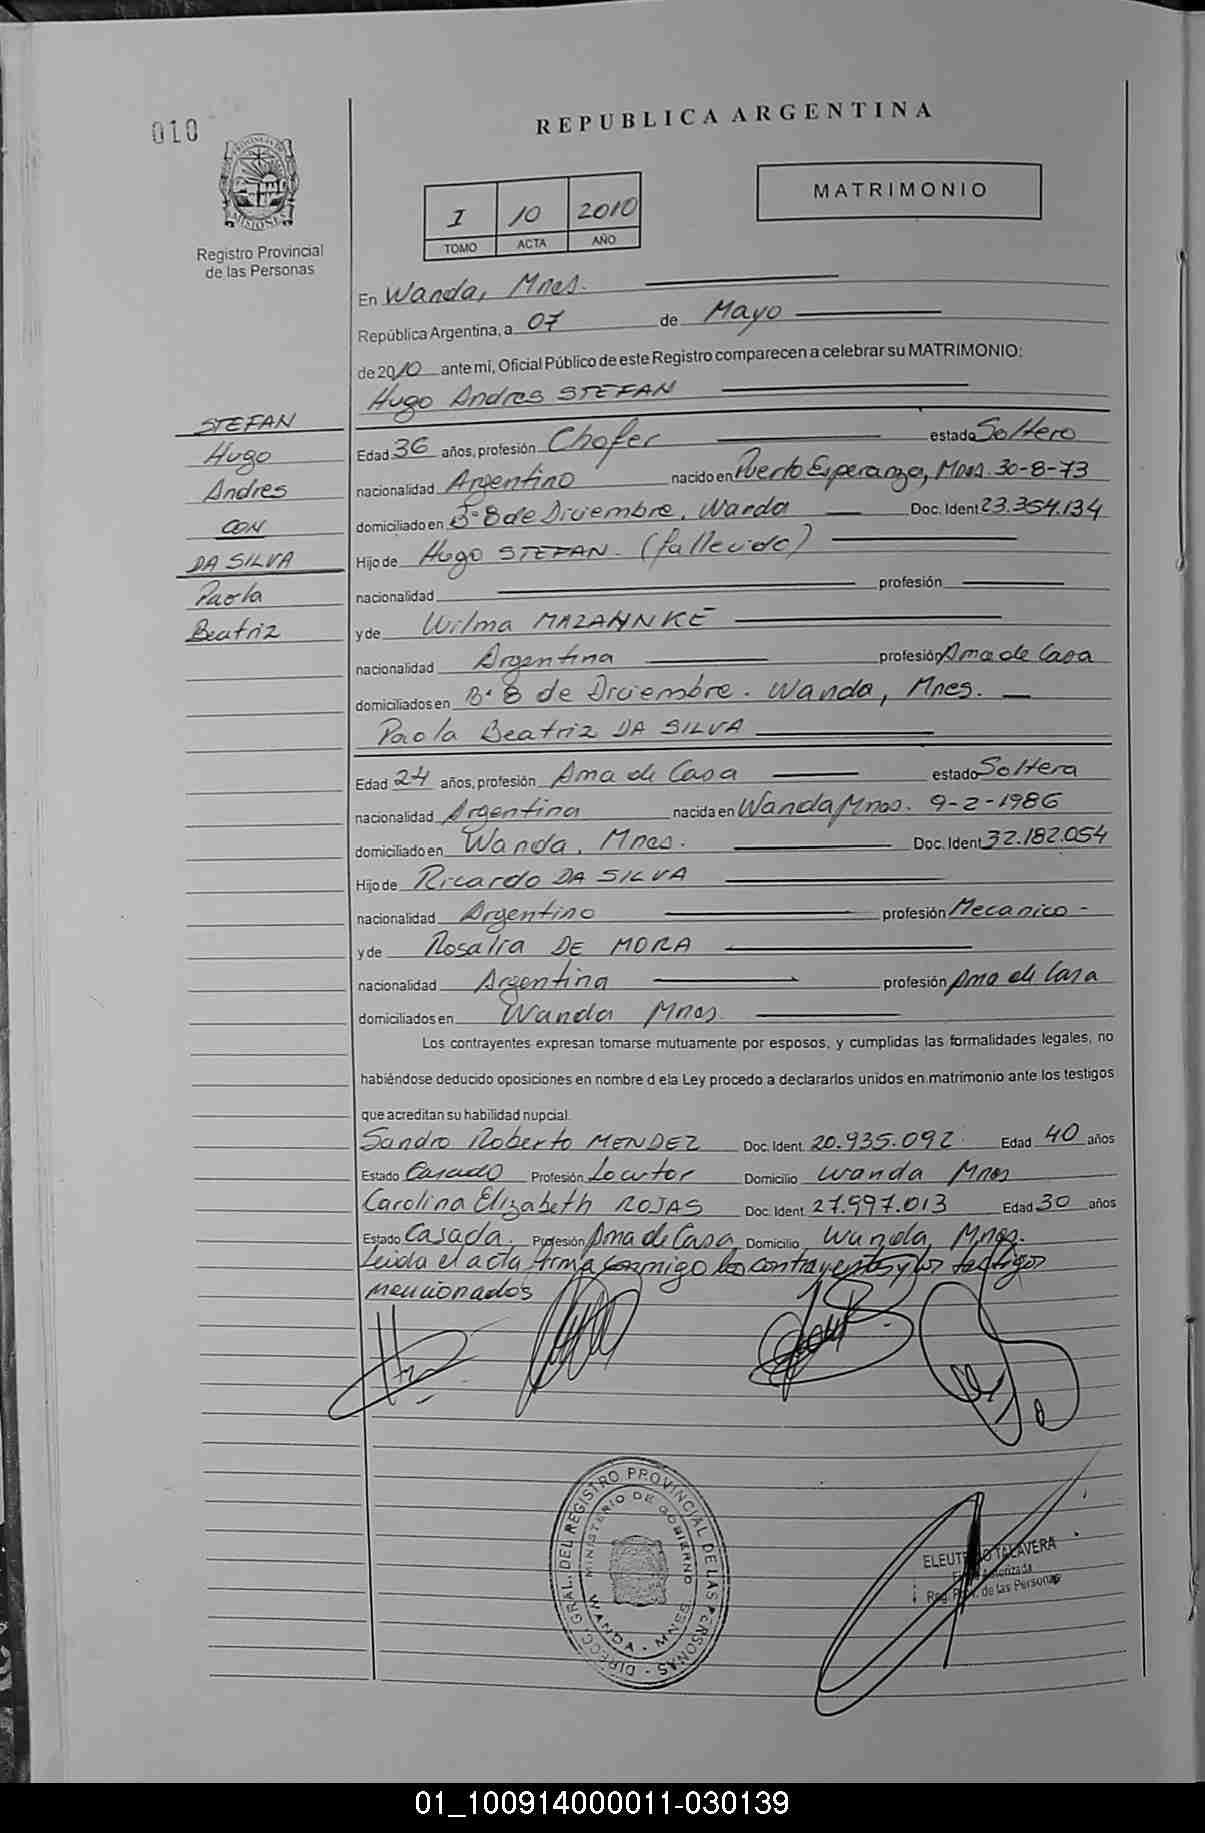 010
REPUBLICA ARGENTINA
MISIONES
Registro Provincial
de las Personas
MATRIMONIO
I 10 2010
TOMO ACTA AÑO
En Wanda, Mnes.
República Argentina, a 07 de Mayo
de 2010 ante mi, Oficial Público de este Registro comparecen a celebrar su MATRIMONIO:
Hugo Andres STEFAN
STEFAN
Hugo
Andres
CON
DA SILVA
Paola
Beatriz
Edad 36 años, profesión Chofer estado Soltero
nacionalidad Argentino nacido en Puerto Esperanza, Mnes. 30-8-73
domiciliado en B° 8 de Diciembre, Wanda Doc. Ident 23.354.134
Hijo de Hugo STEFAN. (fallecido)
nacionalidad profesión
y de Wilma
nacionalidad Argentina profesión Ama de Casa
domiciliados en B° 8 de Diciembre. Wanda, Mnes.
Paola Beatriz DA SILVA
Edad 24 años, profesión Ama de Casa estado Soltera
nacionalidad Argentina nacida en Wanda Mnes. 9-2-1986
domiciliado en Wanda, Mnes. Doc. Ident 32.182.054
Hijo de Ricardo DA SILVA
nacionalidad Argentino profesión Mecanico -
y de Rosalia DE MORA
nacionalidad Argentina profesión Ama de Casa
domiciliados en Wanda Mnes.
Los contrayentes expresan tomarse mutuamente por esposos, y cumplidas las formalidades legales, no
habiéndose deducido oposiciones en nombre d ela Ley procedo a declararlos unidos en matrimonio ante los testigos
que acreditan su habilidad nupcial.
Sandro Roberto MENDEZ Doc. Ident. 20.935.092 Edad 40 años
Estado Casado Profesión Locutor Domicilio Wanda Mnes
Carolina Elizabeth ROJAS Doc. Ident. 27.997.013 Edad 30 años
Estado Casada. Profesión Ama de Casa Domicilio Wanda, Mnes.
Leida el acta firma conmigo los contrayentes y los testigos
mencionados
DIRECC. GRAL. DEL REGISTRO PROVINCIAL DE LAS PERSONAS -
MINISTERIO DE GOBIERNO
WANDA - MNES
TALAVERA
Reg. Prov. de las Personas
01_100914000011-030139